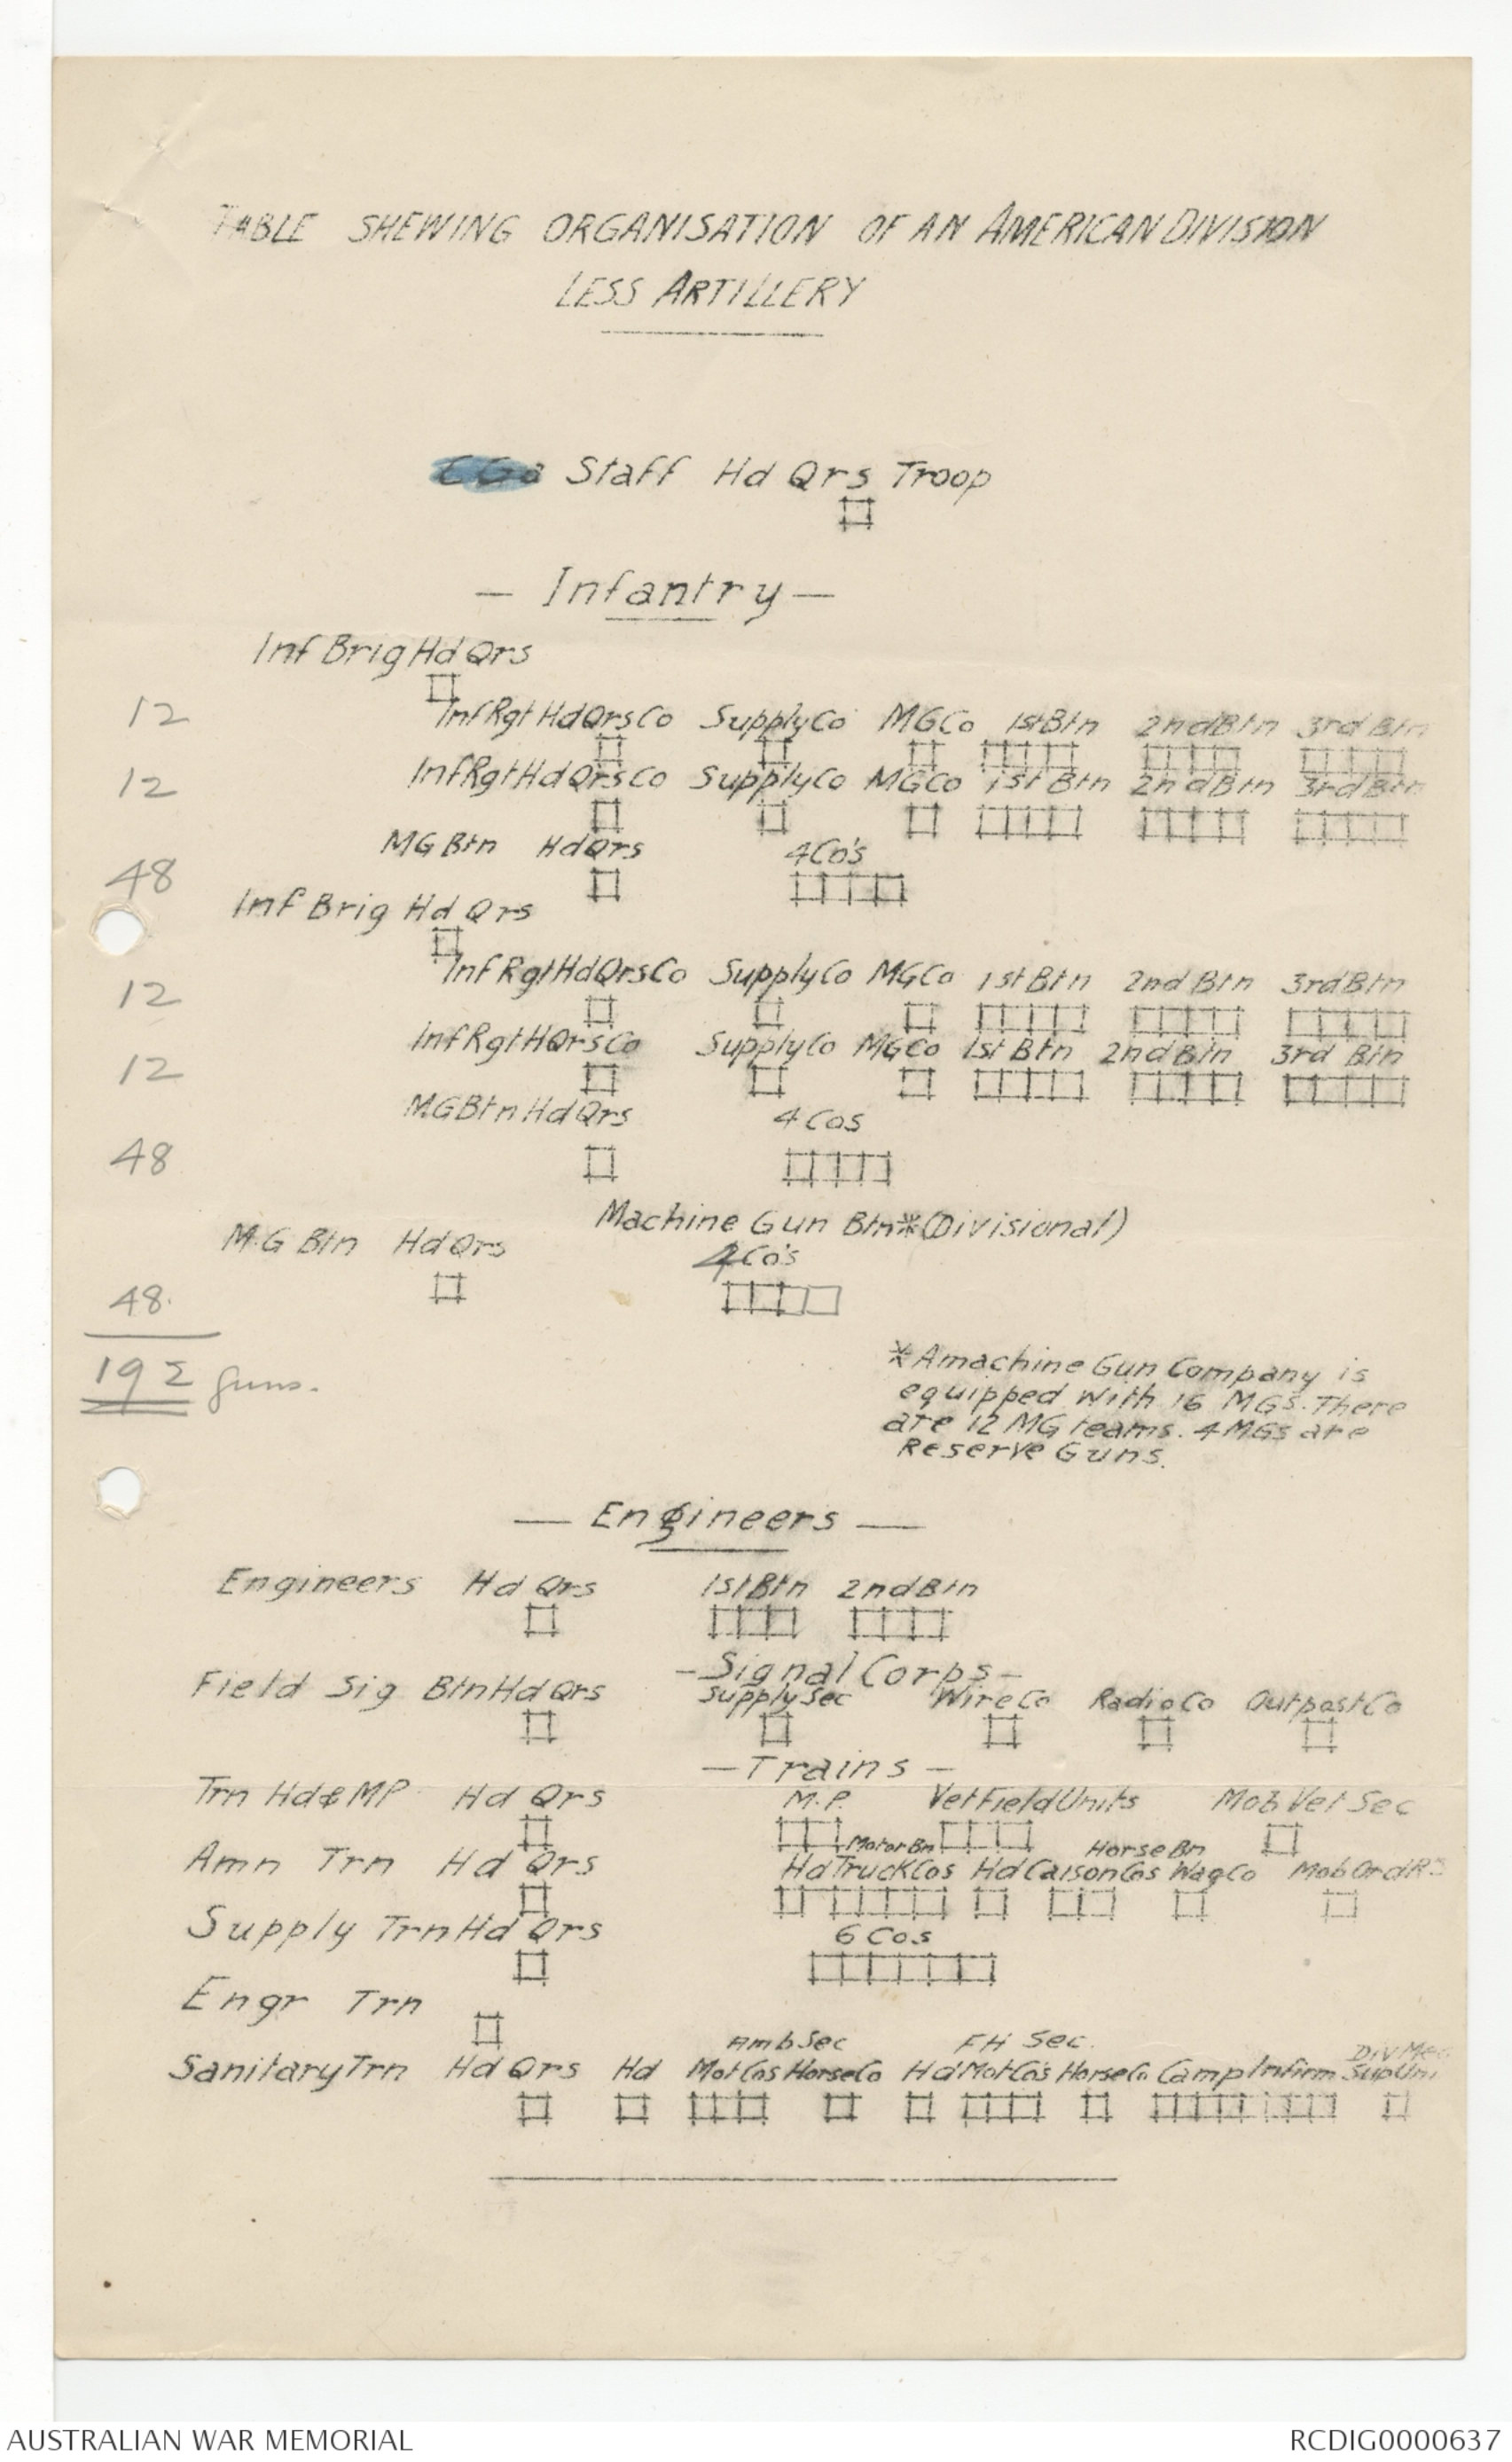 TABLE SHEWING ORGANISATION OF AN AMERICAN DIVISION
LESS ARTILLERY
Staff Hd Qrs Troop
— Infantry —
Inf Brig Hd Qrs
12 Inf Rgt Hd Qrs Co Supply Co MG Co 1st Btn 2nd Btn 3rd Btn
12 Inf Rgt Hd Qrs Co Supply Co MG Co 1st Btn 2nd Btn 3rd Btn
48 MG Btn Hd Qrs 4 Co's
Inf Brig Hd Qrs
12 Inf Rgt Hd Qrs Co Supply Co MG Co 1st Btn 2nd Btn 3rd Btn
12 Inf Rgt H Qrs Co Supply Co MG Co 1st Btn 2nd Btn 3rd Btn
48 MG Btn Hd Qrs 4 Cos
Machine Gun Btn * (Divisional)
M.G Btn Hd Qrs 4 Co's
48.
192 guns.
* A machine Gun Company is
equipped with 16 MGs. There
are 12 MG teams. 4 MGs are
Reserve Guns.
— Engineers —
Engineers Hd Qrs 1st Btn 2nd Btn
— Signal Corps —
Field Sig Btn Hd Qrs Supply Sec Wire Co Radio Co Outpost Co
— Trains —
Trn Hd & MP Hd Qrs M.P. Vet Field Units Mob Vet Sec
Motor Bn Horse Bn
Amn Trn Hd Qrs Hd Truck Cos Hd Caison Cos Wag Co Mob Ord R S
Supply Trn Hd Qrs 6 Cos
Engr Trn
Amb Sec FH Sec. Div Med
Sanitary Trn Hd Qrs Hd Mot Cos Horse Co Hd Mot Co's Horse Co Camp Infirm Sup Uni
AUSTRALIAN WAR MEMORIAL RCDIG0000637